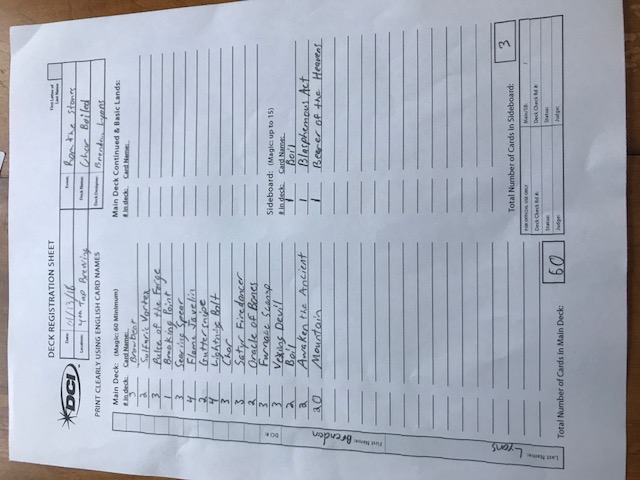 DECK REGISTRATION SHEET
First Letter of
Last Name
DCI
Date: 01/13/18
Event: Rom the Stones
Location: 4th Tap Brewing
Deck Name: Char Boiled
Deck Designer: Brendon Lyons
PRINT CLEARLY USING ENGLISH CARD NAMES
Main Deck: (Magic: 60 Minimum)
# in deck: Card Name:
3 Browbeat
2 Sulfuric Vortex
3 Pulse of the Forge
1 Breaking Point
3 Searing Spear
4 Flame Javelin
2 Guttersnipe
4 Lightning Bolt
3 Char
3 Satyr Firedancer
2 Oracle of Bones
3 Furnace Scamp
3 Vexing Devil
2 Boil
2 Awaken the Ancient
20 Mountain
Total Number of Cards in Main Deck: 60
Main Deck Continued & Basic Lands:
# in deck: Card Name:
Sideboard: (Magic: up to 15)
# in deck: Card Name:
1 Boil
1 Blasphemous Act
1 Bearer of the Heavens
Total Number of Cards in Sideboard: 3
FOR OFFICIAL USE ONLY
Main/SB: /
Deck Check Rd #:
Deck Check Rd #:
Status:
Status:
Judge:
Judge:
DCI #:
First Name: Brendon
Last Name: Lyons